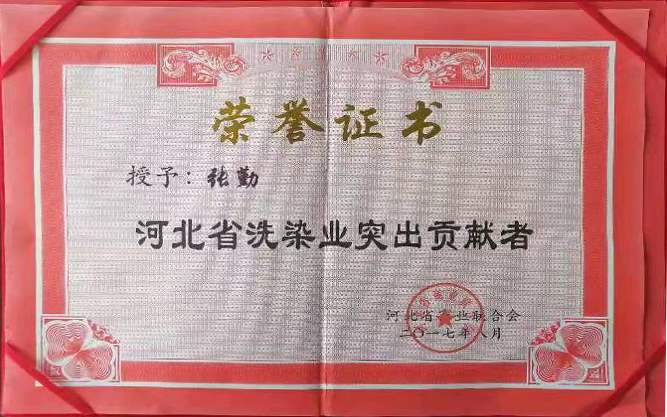 荣誉证书
授予：张勤
河北省洗染业突出贡献者
河北省商业联合会
二〇一七年八月